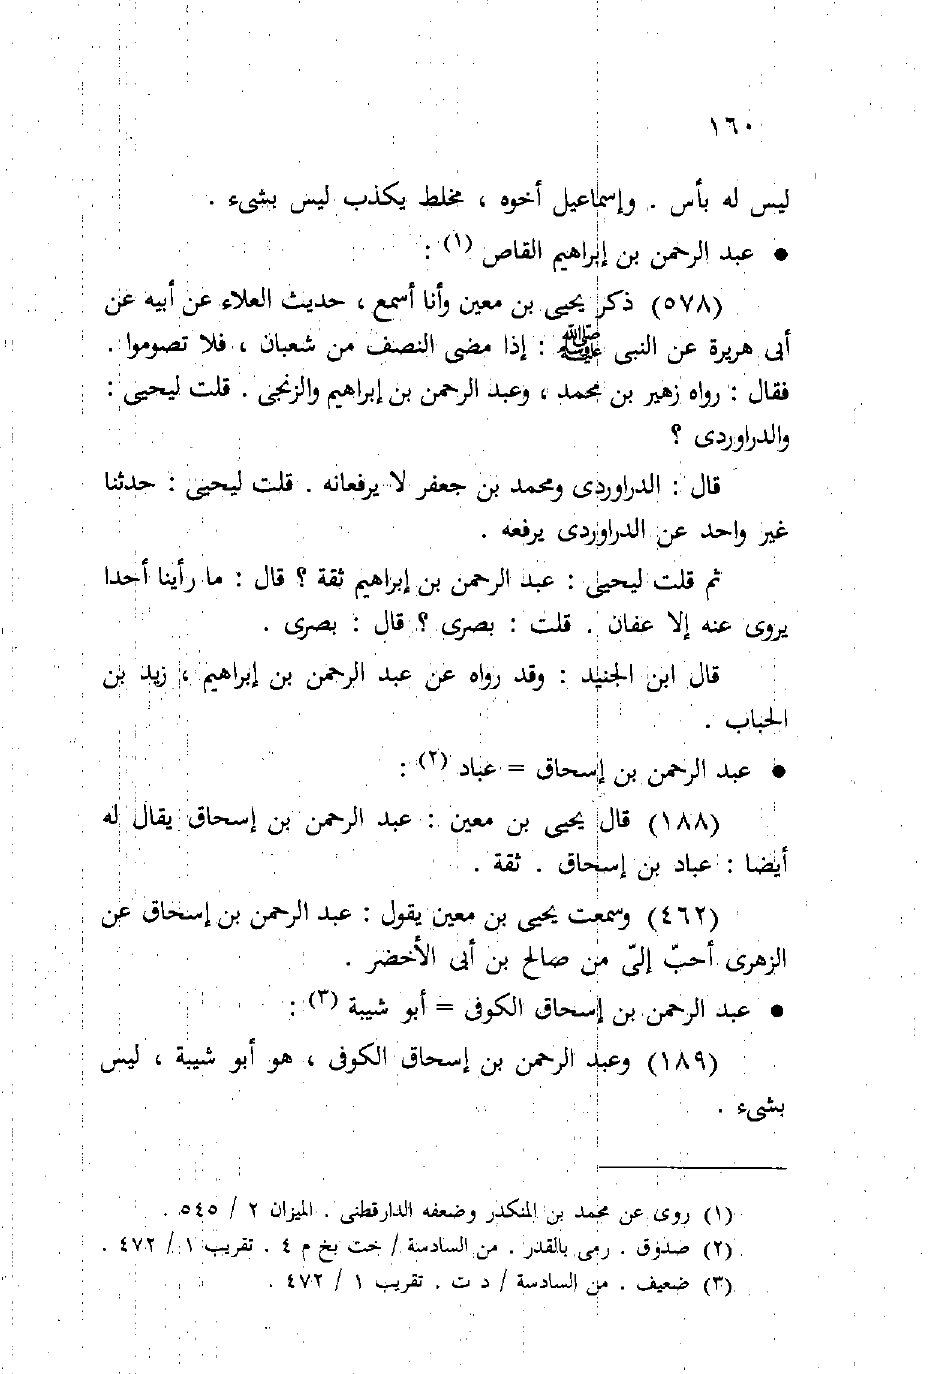 ١٦٠
ليس له بأس . وإسماعيل أخوه ، مخلط يكذب ليس بشىء .
● عبد الرحمن بن إبراهيم القاص (١) :
(٥٧٨) ذكر يحيى بن معين وأنا أسمع ، حديث العلاء عن أبيه عن
أبى هريرة عن النبى ﷺ : إذا مضى النصف من شعبان ، فلا تصوموا .
فقال : رواه زهير بن محمد ، وعبد الرحمن بن إبراهيم والزنجى . قلت ليحيى :
والدراوردى ؟
قال : الدراوردى ومحمد بن جعفر لا يرفعانه . قلت ليحيى : حدثنا
غير واحد عن الدراوردى يرفعه .
ثم قلت ليحيى : عبد الرحمن بن إبراهيم ثقة ؟ قال : ما رأينا أحدا
يروى عنه إلا عفان . قلت : بصرى ؟ قال : بصرى .
قال ابن الجنيد : وقد رواه عن عبد الرحمن بن إبراهيم ، زيد بن
الحباب .
● عبد الرحمن بن إسحاق = عباد (٢) :
(١٨٨) قال يحيى بن معين : عبد الرحمن بن إسحاق يقال له
أيضا : عباد بن إسحاق . ثقة .
(٤٦٢) وسمعت يحيى بن معين يقول : عبد الرحمن بن إسحاق عن
الزهرى أحبّ إلىّ من صالح بن أبى الأخضر .
● عبد الرحمن بن إسحاق الكوفى = أبو شيبة (٣) :
(١٨٩) وعبد الرحمن بن إسحاق الكوفى ، هو أبو شيبة ، ليس
بشىء .
(١) روى عن محمد بن المنكدر وضعفه الدارقطنى . الميزان ٢ / ٥٤٥ .
(٢) صدوق . رمى بالقدر . من السادسة / خت بخ م ٤ . تقريب ١ / ٤٧٢ .
(٣) ضعيف . من السادسة / د ت . تقريب ١ / ٤٧٢ .